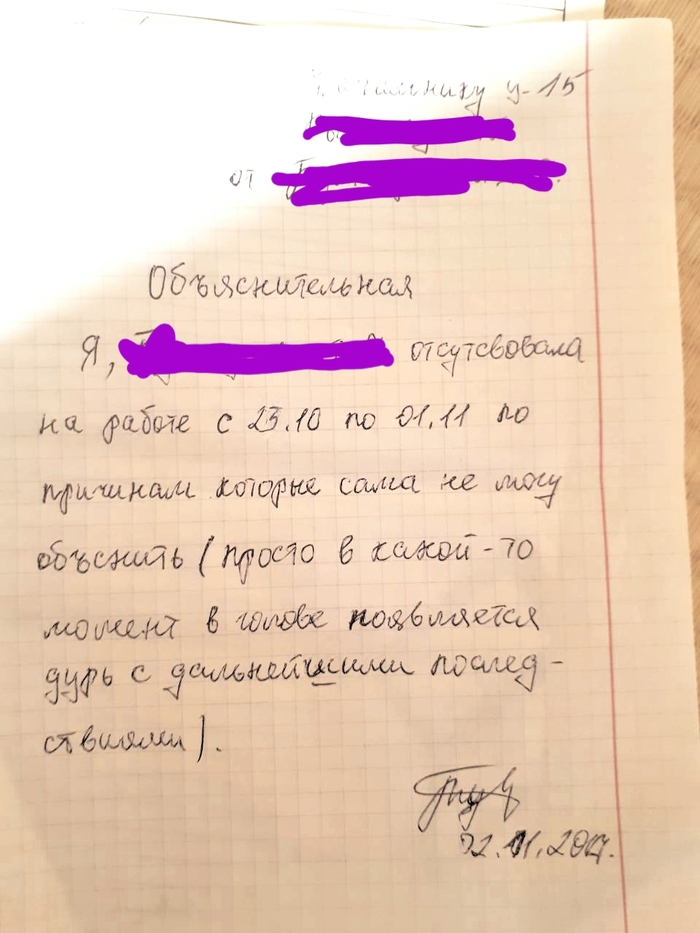 Начальнику у-15
от
Объяснительная
Я, отсутсвовала
на работе с 23.10 по 01.11 по
причинам которые сама не могу
объснить (просто в какой-то
момент в голове появляется
дурь с дальнейшими послед-
ствиями).
02.11.2017.